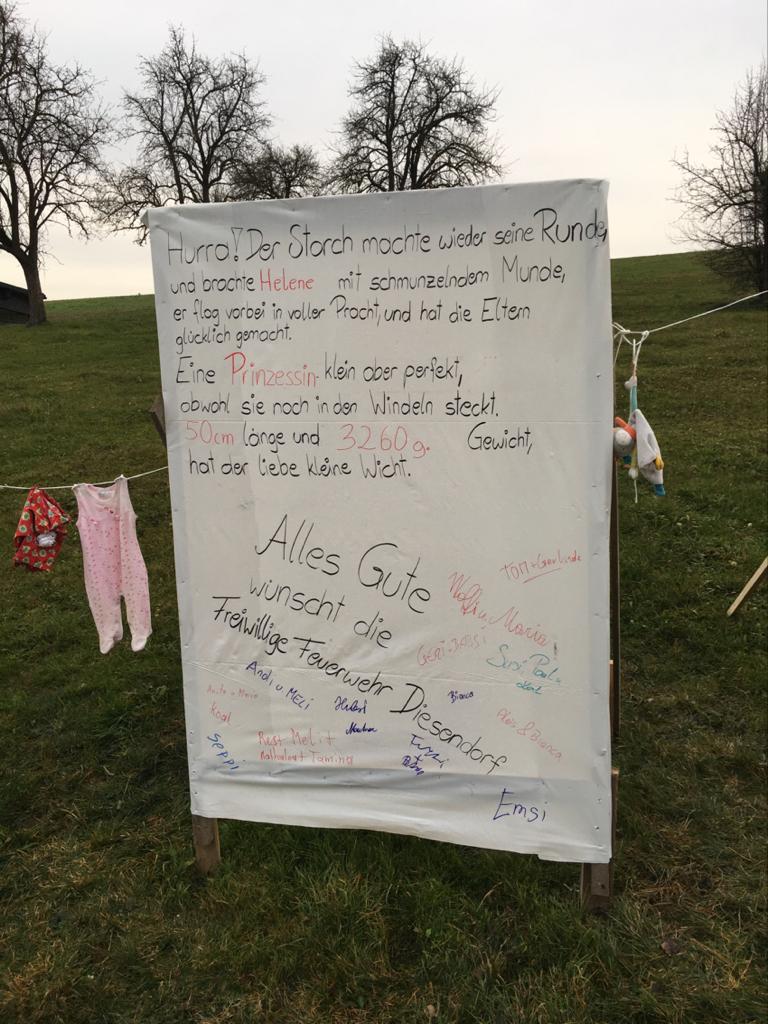 Hurra! Der Storch machte wieder seine Runde,
und brachte Helene mit schmunzelndem Munde,
er flog vorbei in voller Pracht, und hat die Eltern
glücklich gemacht.
Eine Prinzessin klein aber perfekt,
obwohl sie noch in den Windeln steckt.
50cm länge und 3260g. Gewicht,
hat der liebe kleine Wicht.
Alles Gute
wünscht die
Freiwillige Feuerwehr Diesendorf
TOM + Gerlinde
Wolfi u. Maria
GERI + BASSI
Susi Paul
Andi u MELI
Bianca
Koal
Resi Melit
Tamina
& Bianca
Seppi
Emsi